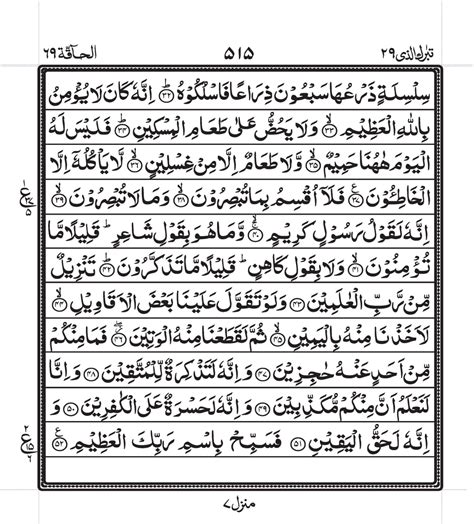 تبٰرك الذی ٢٩
٥١٥
الحآقة ٦٩
سِلْسِلَةٍ ذَرْعُهَا سَبْعُوْنَ ذِرَاعًا فَاسْلُكُوْهُ ﴿٣٢﴾ اِنَّهٗ كَانَ لَا يُؤْمِنُ
بِاللّٰهِ الْعَظِيْمِ ﴿٣٣﴾ وَلَا يَحُضُّ عَلٰى طَعَامِ الْمِسْكِيْنِ ﴿٣٤﴾ فَلَيْسَ لَهُ
الْيَوْمَ هٰهُنَا حَمِيْمٌ ﴿٣٥﴾ وَّلَا طَعَامٌ اِلَّا مِنْ غِسْلِيْنٍ ﴿٣٦﴾ لَّا يَاْكُلُهٗٓ اِلَّا
الْخَاطِـُٔوْنَ ﴿٣٧﴾ فَلَآ اُقْسِمُ بِمَا تُبْصِرُوْنَ ﴿٣٨﴾ وَمَا لَا تُبْصِرُوْنَ ﴿٣٩﴾
اِنَّهٗ لَقَوْلُ رَسُوْلٍ كَرِيْمٍ ﴿٤٠﴾ وَّمَا هُوَ بِقَوْلِ شَاعِرٍ ؕ قَلِيْلًا مَّا
تُؤْمِنُوْنَ ﴿٤١﴾ وَلَا بِقَوْلِ كَاهِنٍ ؕ قَلِيْلًا مَّا تَذَكَّرُوْنَ ﴿٤٢﴾ تَنْزِيْلٌ
مِّنْ رَّبِّ الْعٰلَمِيْنَ ﴿٤٣﴾ وَلَوْ تَقَوَّلَ عَلَيْنَا بَعْضَ الْاَقَاوِيْلِ ﴿٤٤﴾
لَاَخَذْنَا مِنْهُ بِالْيَمِيْنِ ﴿٤٥﴾ ثُمَّ لَقَطَعْنَا مِنْهُ الْوَتِيْنَ ﴿٤٦﴾ فَمَا مِنْكُمْ
مِّنْ اَحَدٍ عَنْهُ حٰجِزِيْنَ ﴿٤٧﴾ وَاِنَّهٗ لَتَذْكِرَةٌ لِّلْمُتَّقِيْنَ ﴿٤٨﴾ وَاِنَّا
لَنَعْلَمُ اَنَّ مِنْكُمْ مُّكَذِّبِيْنَ ﴿٤٩﴾ وَاِنَّهٗ لَحَسْرَةٌ عَلَى الْكٰفِرِيْنَ ﴿٥٠﴾ وَ
اِنَّهٗ لَحَقُّ الْيَقِيْنِ ﴿٥١﴾ فَسَبِّحْ بِاسْمِ رَبِّكَ الْعَظِيْمِ ﴿٥٢﴾
منزل ٧